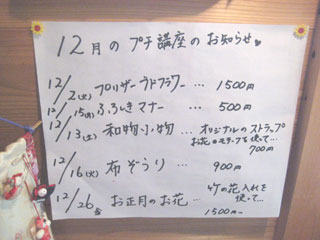 12月のプチ講座のお知らせ♥
12/2(火) プリザーラドフラワー … 1500円
12/15(月) ふろしきマナー … 500円
12/13(土) 和物小物 … オリジナルのストラップ
お花のモチーフを使って…
700円
12/16(火) 布ぞうり … 900円
12/26(金) お正月のお花 … 竹の花入れを
使って…
1500円〜